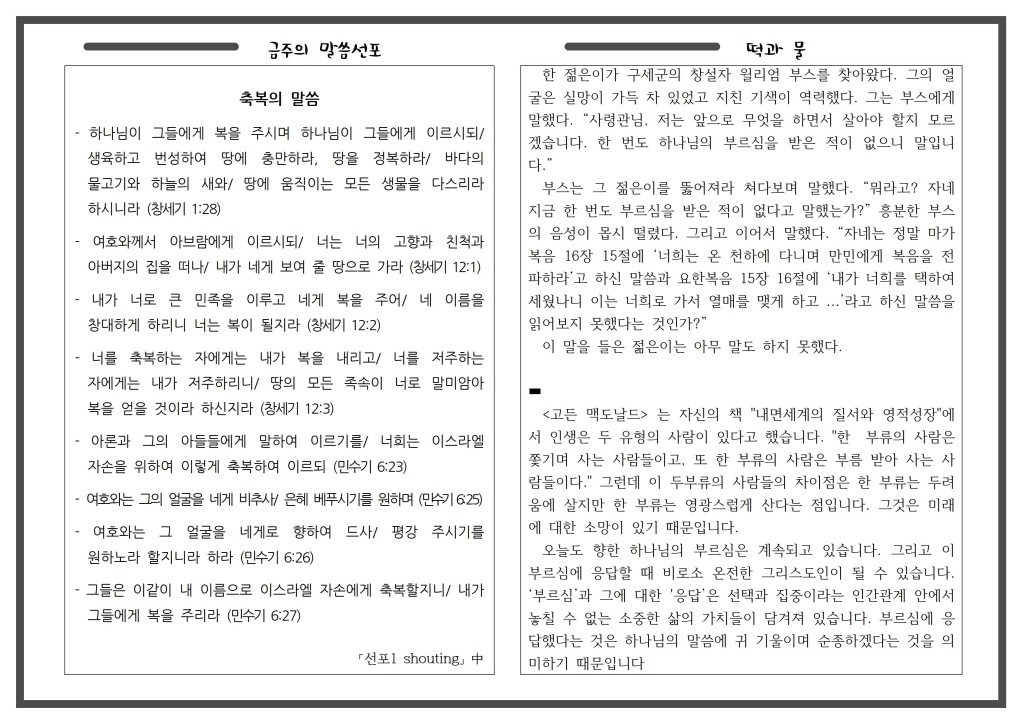 금주의 말씀선포
축복의 말씀
- 하나님이 그들에게 복을 주시며 하나님이 그들에게 이르시되/
생육하고 번성하여 땅에 충만하라, 땅을 정복하라/ 바다의
물고기와 하늘의 새와/ 땅에 움직이는 모든 생물을 다스리라
하시니라 (창세기 1:28)
- 여호와께서 아브람에게 이르시되/ 너는 너의 고향과 친척과
아버지의 집을 떠나/ 내가 네게 보여 줄 땅으로 가라 (창세기 12:1)
- 내가 너로 큰 민족을 이루고 네게 복을 주어/ 네 이름을
창대하게 하리니 너는 복이 될지라 (창세기 12:2)
- 너를 축복하는 자에게는 내가 복을 내리고/ 너를 저주하는
자에게는 내가 저주하리니/ 땅의 모든 족속이 너로 말미암아
복을 얻을 것이라 하신지라 (창세기 12:3)
- 아론과 그의 아들들에게 말하여 이르기를/ 너희는 이스라엘
자손을 위하여 이렇게 축복하여 이르되 (민수기 6:23)
- 여호와는 그의 얼굴을 네게 비추사/ 은혜 베푸시기를 원하며 (민수기 6:25)
- 여호와는 그 얼굴을 네게로 향하여 드사/ 평강 주시기를
원하노라 할지니라 하라 (민수기 6:26)
- 그들은 이같이 내 이름으로 이스라엘 자손에게 축복할지니/ 내가
그들에게 복을 주리라 (민수기 6:27)
「선포1 shouting」 中
떡과 물
한 젊은이가 구세군의 창설자 윌리엄 부스를 찾아왔다. 그의 얼
굴은 실망이 가득 차 있었고 지친 기색이 역력했다. 그는 부스에게
말했다. “사령관님, 저는 앞으로 무엇을 하면서 살아야 할지 모르
겠습니다. 한 번도 하나님의 부르심을 받은 적이 없으니 말입니
다.”
부스는 그 젊은이를 뚫어져라 쳐다보며 말했다. “뭐라고? 자네
지금 한 번도 부르심을 받은 적이 없다고 말했는가?” 흥분한 부스
의 음성이 몹시 떨렸다. 그리고 이어서 말했다. “자네는 정말 마가
복음 16장 15절에 ‘너희는 온 천하에 다니며 만민에게 복음을 전
파하라’고 하신 말씀과 요한복음 15장 16절에 ‘내가 너희를 택하여
세웠나니 이는 너희로 가서 열매를 맺게 하고 …’라고 하신 말씀을
읽어보지 못했다는 것인가?”
이 말을 들은 젊은이는 아무 말도 하지 못했다.
<고든 맥도날드> 는 자신의 책 "내면세계의 질서와 영적성장"에
서 인생은 두 유형의 사람이 있다고 했습니다. "한 부류의 사람은
쫓기며 사는 사람들이고, 또 한 부류의 사람은 부름 받아 사는 사
람들이다." 그런데 이 두부류의 사람들의 차이점은 한 부류는 두려
움에 살지만 한 부류는 영광스럽게 산다는 점입니다. 그것은 미래
에 대한 소망이 있기 때문입니다.
오늘도 향한 하나님의 부르심은 계속되고 있습니다. 그리고 이
부르심에 응답할 때 비로소 온전한 그리스도인이 될 수 있습니다.
‘부르심’과 그에 대한 '응답’은 선택과 집중이라는 인간관계 안에서
놓칠 수 없는 소중한 삶의 가치들이 담겨져 있습니다. 부르심에 응
답했다는 것은 하나님의 말씀에 귀 기울이며 순종하겠다는 것을 의
미하기 때문입니다